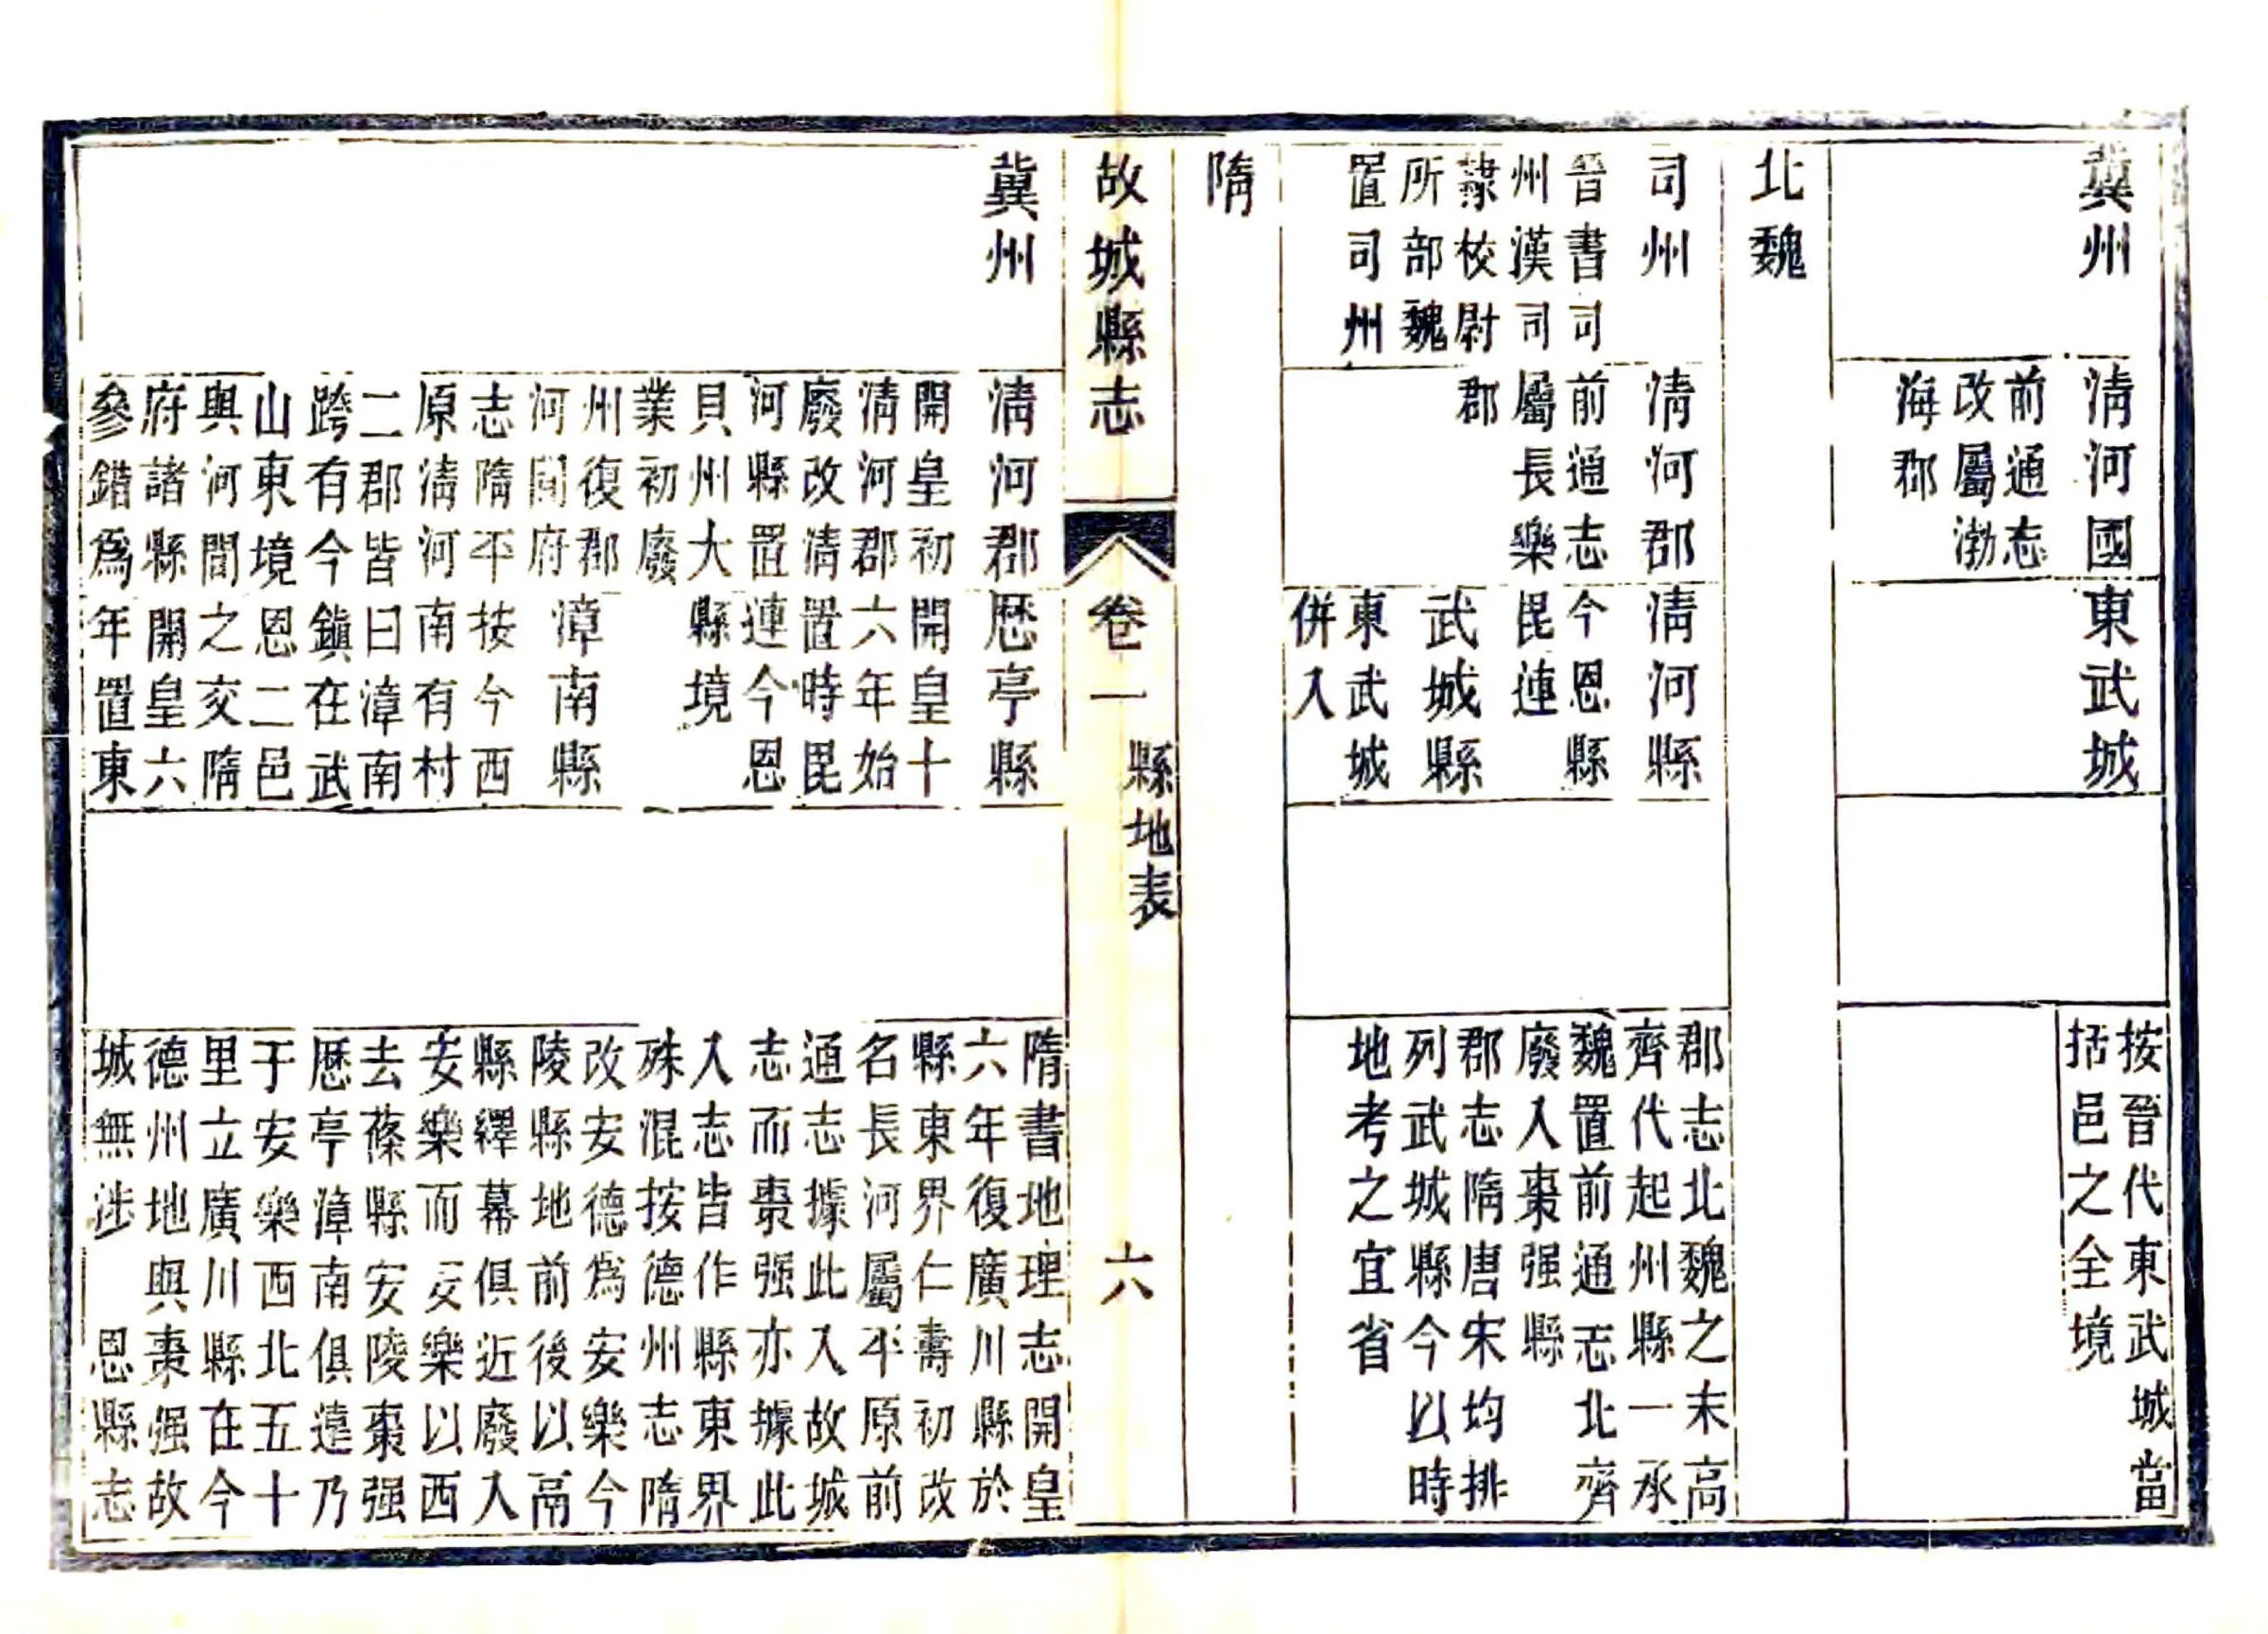 冀州
清河國
前通志
改屬渤
海郡
東武城
按晉代東武城當
括邑之全境
北魏
司州
晉書司
州漢司
隸校尉
所部魏
置司州
清河郡
前通志
屬長樂
郡
清河縣
今恩縣
毘連
武城縣
東武城
併入
郡志北魏之末高
齊代起州縣一承
魏置前通志北齊
廢入棗强縣
郡志隋唐宋均排
列武城縣今以時
地考之宜省
隋
故城縣志
卷一
縣地表
六
冀州
清河郡
開皇初
清河郡
廢改清
河縣置
貝州大
業初廢
州復郡
河間府
志隋平
原清河
二郡皆
跨有今
山東境
與河間
府諸縣
參錯爲
歷亭縣
開皇十
六年始
置時毘
連今恩
縣境
漳南縣
按今西
南有村
曰漳南
鎮在武
恩二邑
之交隋
開皇六
年置東
隋書地理志開皇
六年復廣川縣於
縣東界仁壽初改
名長河屬平原前
通志據此入故城
志而棗强亦據此
入志皆作縣東界
殊混按德州志隋
改安德爲安樂今
陵縣地前後以鬲
縣繹幕俱近廢入
安樂而安樂以西
去蓨縣安陵棗强
歷亭漳南俱遠乃
于安樂西北五十
里立廣川縣在今
德州地與棗强故
城無涉　恩縣志